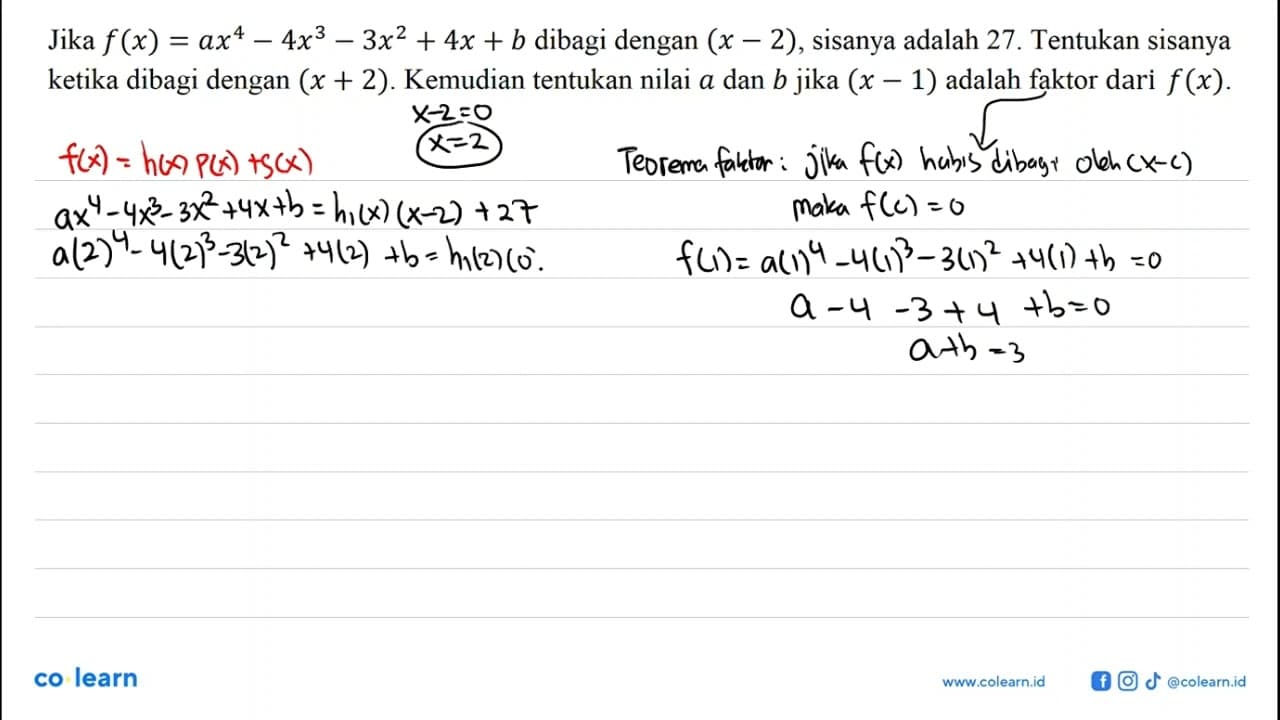 Jika f(x) = ax⁴ − 4x³ − 3x² + 4x + b dibagi dengan (x − 2), sisanya adalah 27. Tentukan sisanya
ketika dibagi dengan (x + 2). Kemudian tentukan nilai a dan b jika (x − 1) adalah faktor dari f(x).
x-2=0
x=2
f(x) = h(x) p(x) + s(x)
ax⁴-4x³-3x²+4x+b = h₁(x)(x-2) + 27
a(2)⁴-4(2)³-3(2)² +4(2) +b = h₁(2)(0
Teorema faktor : jika f(x) habis dibagi oleh (x-c)
maka f(c) = 0
f(1) = a(1)⁴ -4(1)³ -3(1)² +4(1) +b =0
a -4 -3 +4 +b=0
a+b =3
co learn
www.colearn.id
@colearn.id